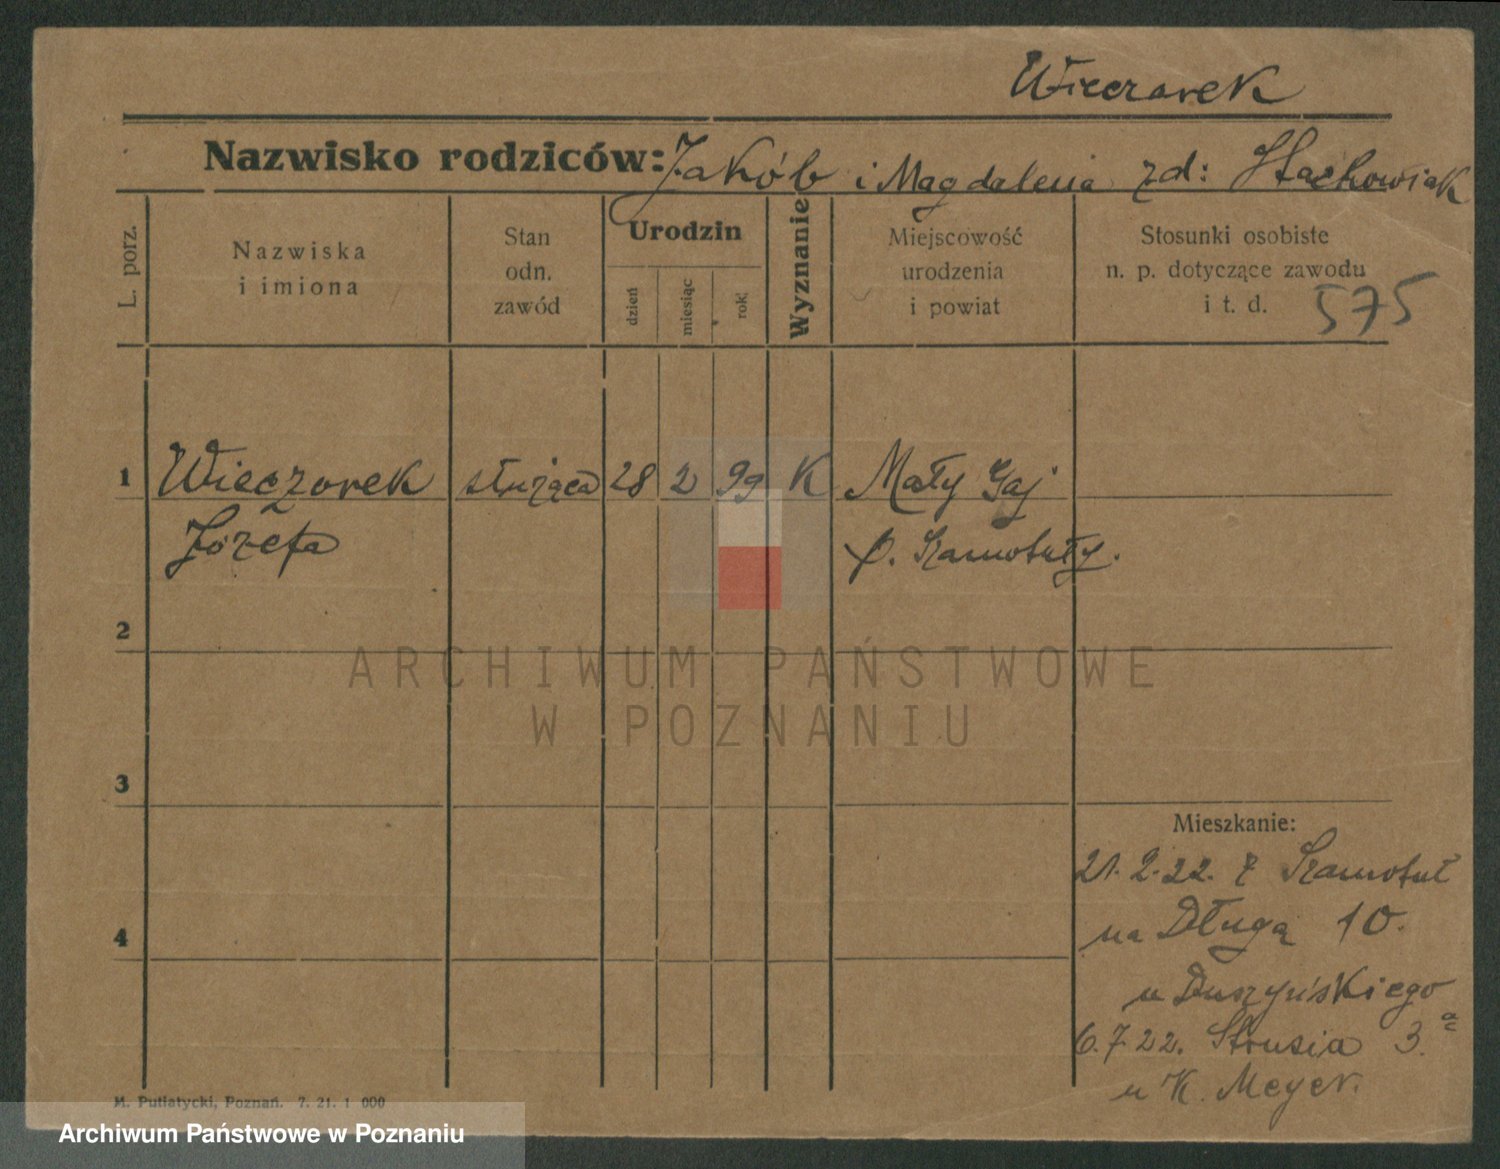 Wieczorek
Nazwisko rodziców: Jakób i Magdalena zd: Stachowiak
L. porz.
Nazwiska
i imiona
Stan
odn.
zawód
Urodzin
dzień
miesiąc
rok
Wyznanie
Miejscowość
urodzenia
i powiat
Stosunki osobiste
n. p. dotyczące zawodu
i t. d.
575
1 Wieczorek służąca 28 2 99 K Mały Gaj
Józefa p. Szamotuły.
2
ARCHIWUM PAŃSTWOWE
W POZNANIU
3
Mieszkanie:
21.2.22. z Szamotuł
4 na Długą 10.
u Duszyńskiego
6.7.22. Strusia 3.
u K. Meyer.
M. Putiatycki, Poznań. 7. 21. 1 000
Archiwum Państwowe w Poznaniu